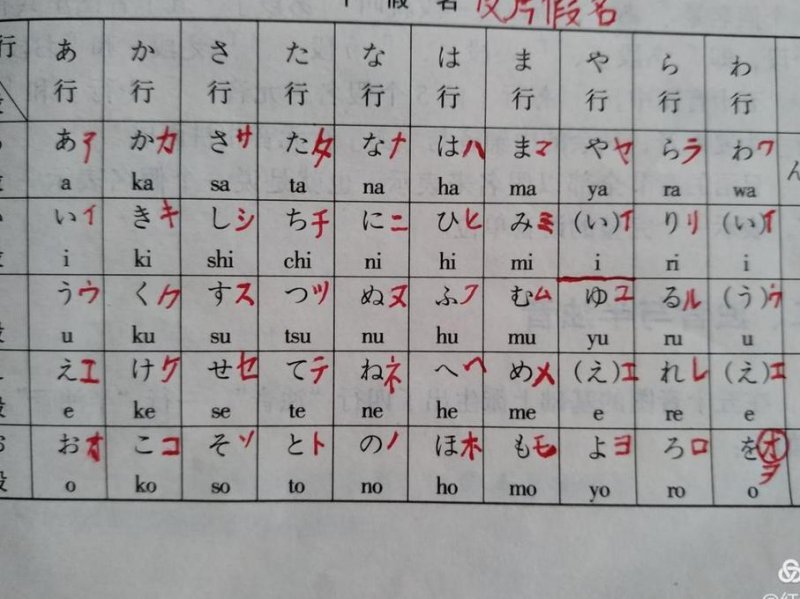 假 名 及片假名
行 あ か さ た な は ま や ら わ
行 行 行 行 行 行 行 行 行 行
あア かカ さサ たタ なナ はハ まマ やヤ らラ わワ ん
a ka sa ta na ha ma ya ra wa
いイ きキ しシ ちチ にニ ひヒ みミ (い)イ りリ (い)イ
i ki shi chi ni hi mi i ri i
うウ くク すス つツ ぬヌ ふフ むム ゆユ るル (う)ウ
u ku su tsu nu hu mu yu ru u
えエ けケ せセ てテ ねネ へヘ めメ (え)エ れレ (え)エ
段 e ke se te ne he me e re e
おオ こコ そソ とト のノ ほホ もモ よヨ ろロ をオ ヲ
段 o ko so to no ho mo yo ro o